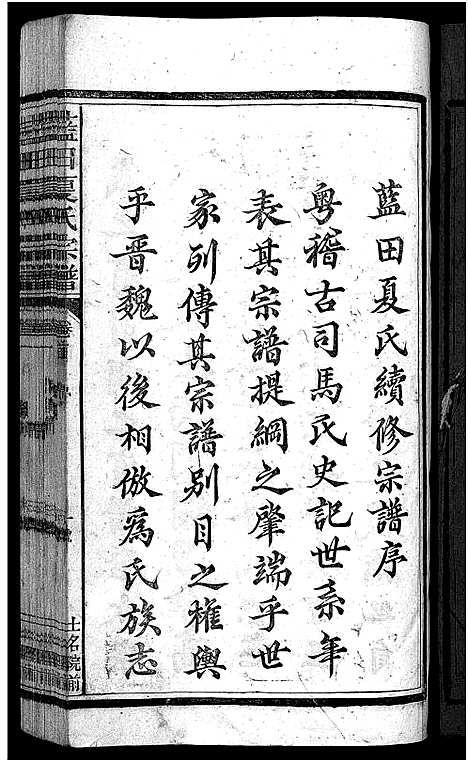 藍田夏氏續修宗譜序
粵稽古司馬氏史記世系年
表其宗譜提綱之肇端乎世
家列傳其宗譜別目之權輿
乎晋魏以後相倣爲氏族志
藍田夏氏宗譜
卷首
土名院前